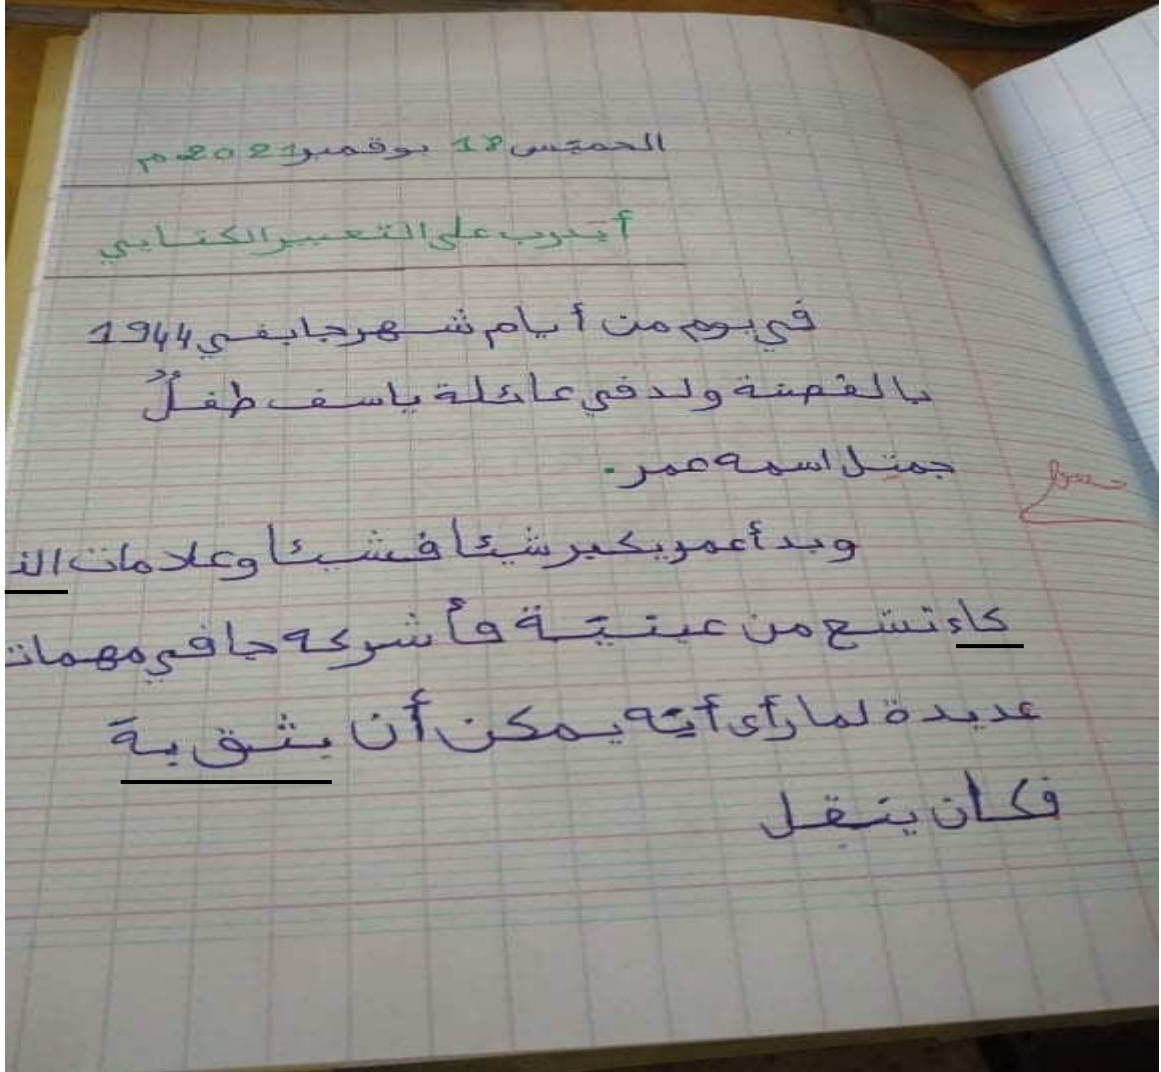 الخميس 18 نوفمبر 2021م
أتدرب على التعبير الكتابي
في يوم من أيام شهر جانفي 1944
بالقصبة ولد في عائلة ياسف طفلٌ
جميل اسمه عمر.
وبدأ عمر يكبر شيئا فشيئا وعلامات الذ
كاء تشع من عينية فأشركه جا في مهمات
عديدة لما رأى أنه يمكن أن يثق بة
فكان ينقل